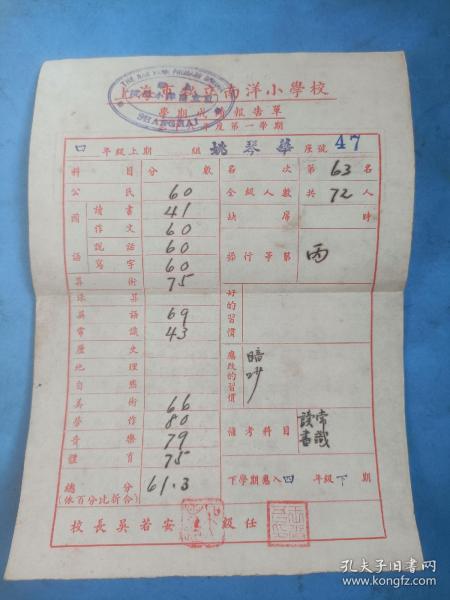 上海市私立南洋小學校
THE NAN YANG PRIMARY SCHOOL
SHANGHAI
學期成績報告單
年度第一學期
四 年級上期 組 姚琴華 座號 47
科目 分數 名次 第63名
公民 60 全級人數 共72人
國語 讀書 41 缺席 時
作文 60
說話 60 操行等第 丙
寫字 60
算術 75 好的習慣
珠算
英語 69
常識 43
歷史 應改的習慣 暗吵
地理
自然
美術 66
勞作 80 備考科目 常識 讀書
音樂 79
體育 75
總分 61.3 下學期應入四年級下期
(依百分比折合)
校長吳若安 級任
孔夫子旧书网
www.kongfz.com